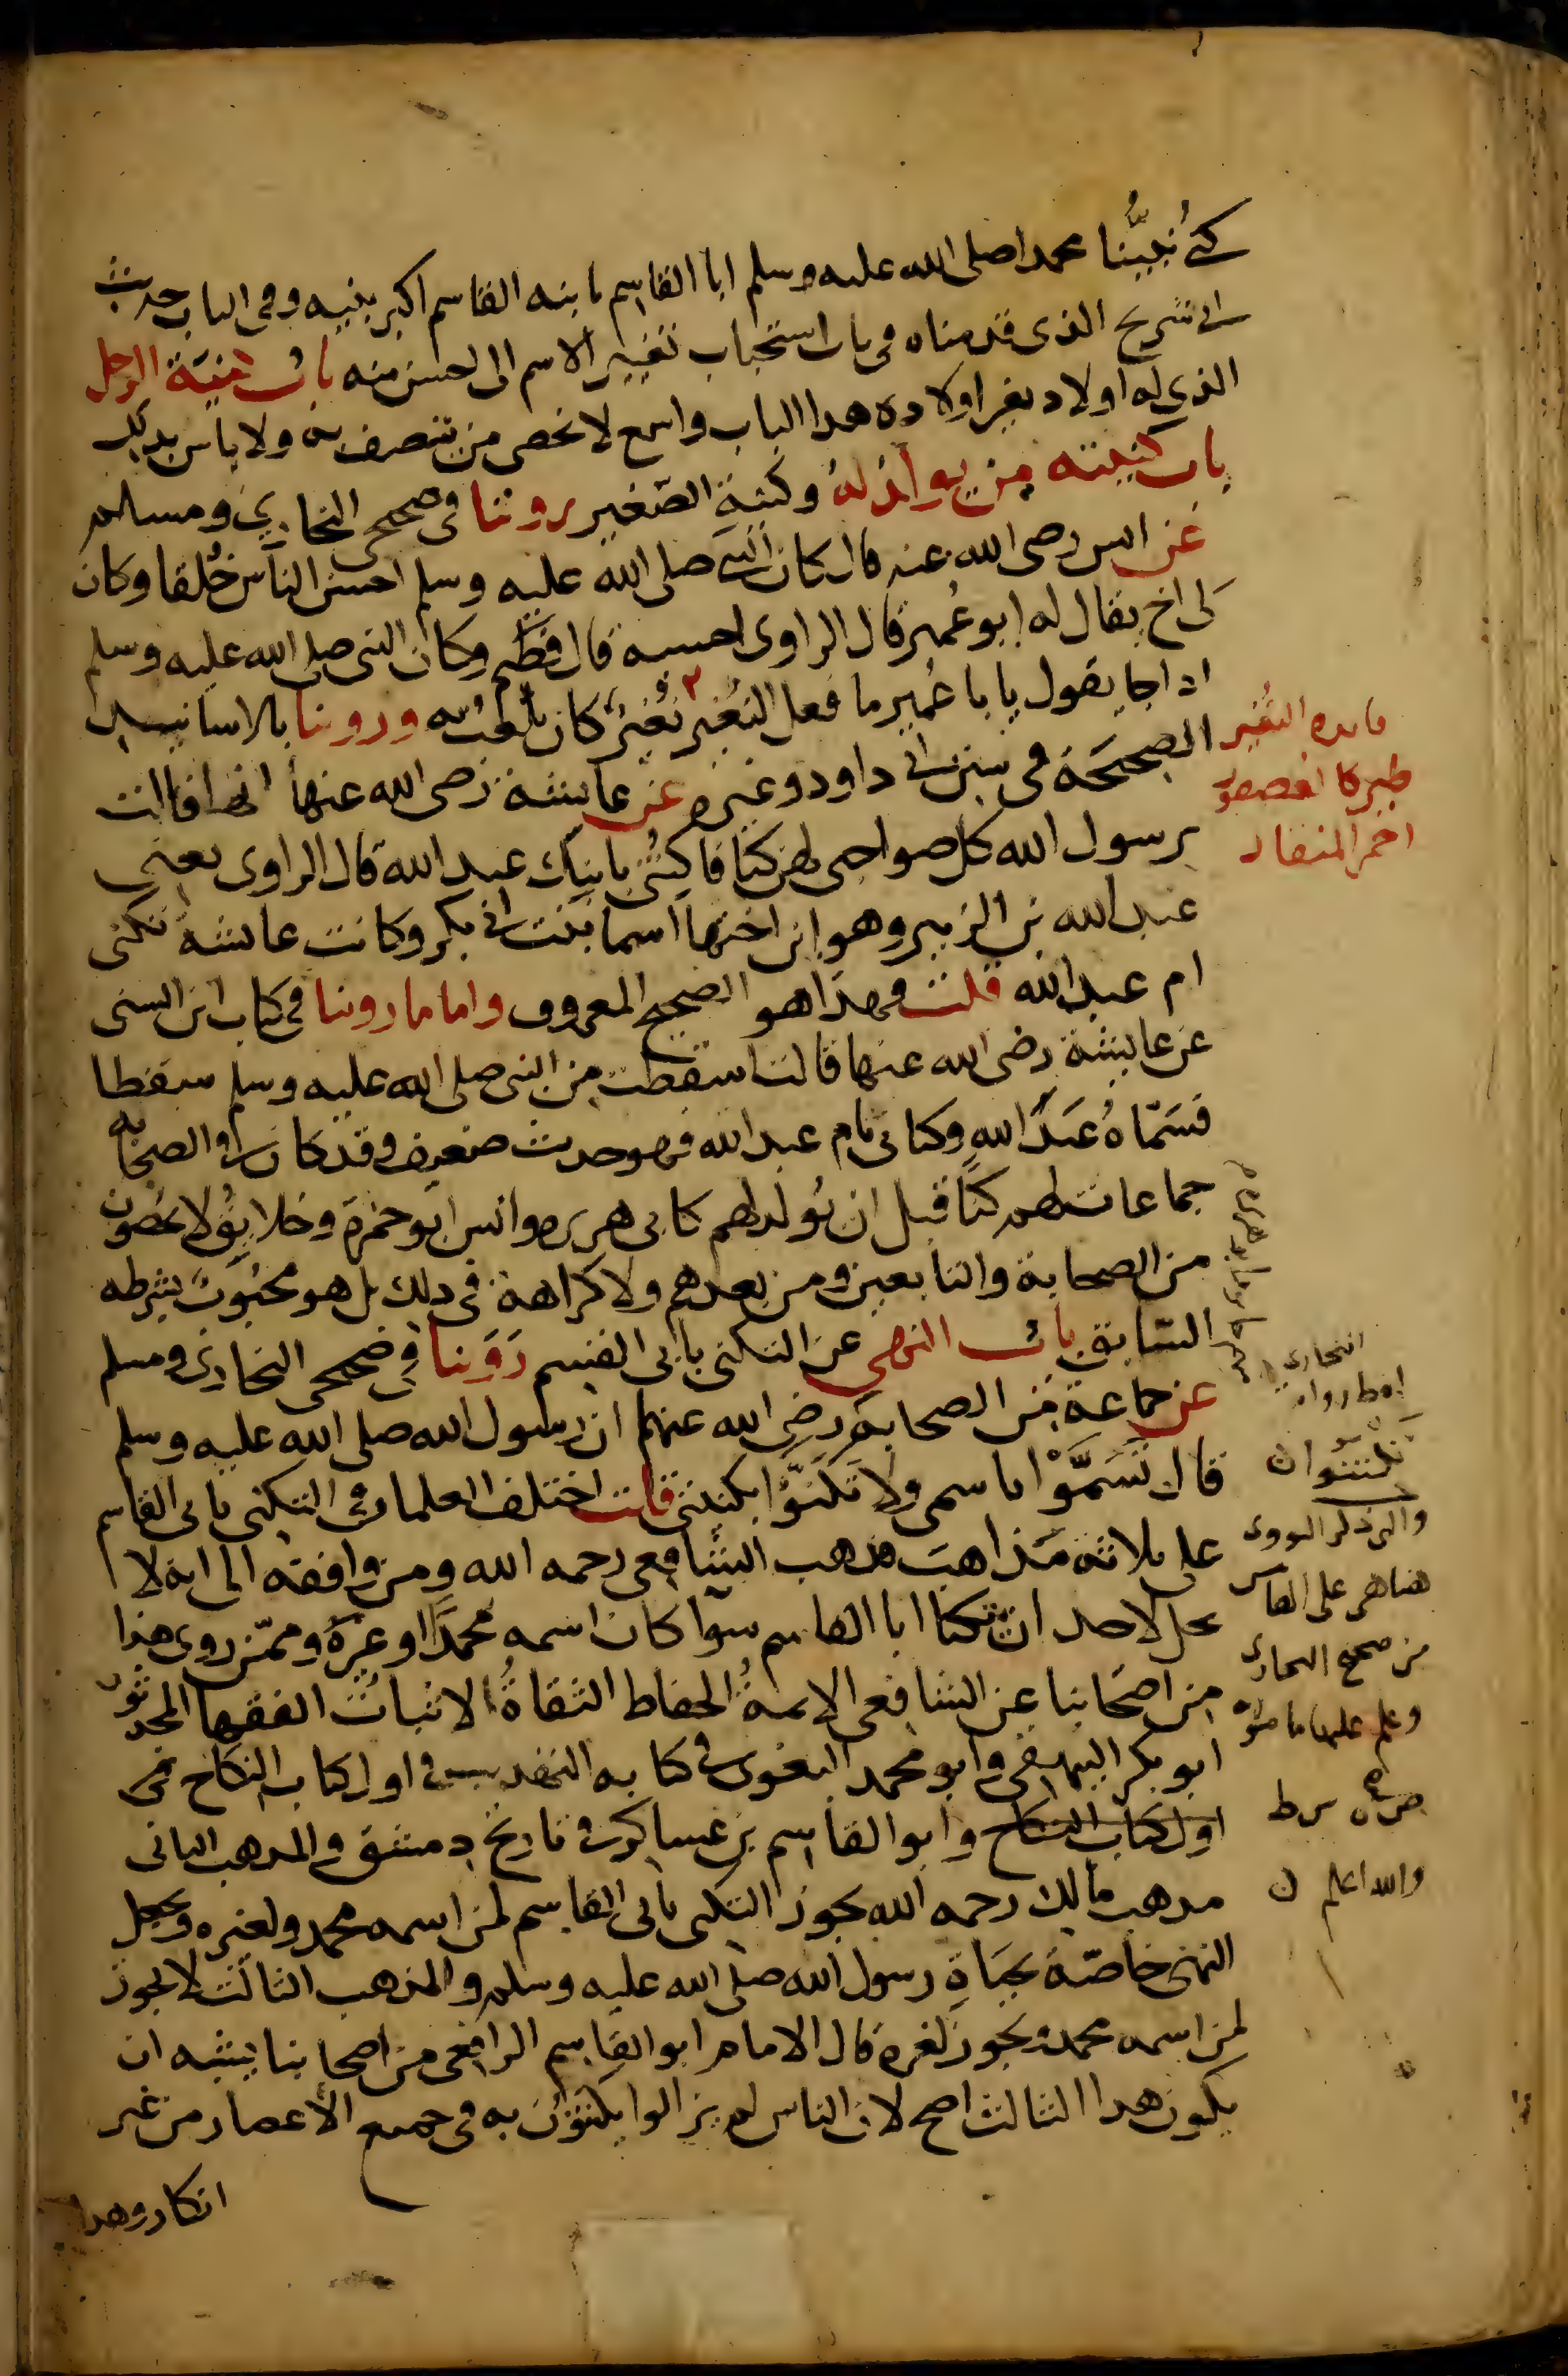 كنى نبيُّنا محمدا صلى الله عليه وسلم ابا القاسم بابنه القاسم اكبر بنيه وفى الباب حديث
ابى شريح الذى قدمناه فى باب استحباب تغيير الاسم الى احسن منه باب كنية الرجل
الذى له اولاد بغير اولاده هدا الباب واسع لا يحصى من يتصف به ولا باس بذلك
باب كنيته من لم يولد له وكنية الصغير روينا فى صحيحى البخارى ومسلم
عن انس رضى الله عنه قال كان النبى صلى الله عليه وسلم احسن الناس خُلقا وكان
لى اخ يقال له ابو عُمير قال الراوى احسبه قال فطيم وكان النبى صلى الله عليه وسلم
اداجا يقول يابا عُمير ما فعل النُغير نُغير كان يلعب به وروينا بالاسانيد
الصحيحة فى سنن ابى داود وغيره عن عايشة رضى الله عنها انها قالت
يرسول الله كل صواحبى لهن كنا فاكتنى بابنك عبد الله قال الراوى يعنى
عبد الله بن الزبير وهو ابن اختها اسما بنت ابى بكر وكانت عايشة تكنى
ام عبد الله قلت فهذا هو الصحيح المعروف واما ما روينا فى كتاب ابن السنى
عن عايشة رضى الله عنها قالت اسقطت من النبى صلى الله عليه وسلم سقطا
فسَمّاهُ عَبدَ الله وكنانى بام عبد الله فهو حديث ضعيف وقد كان فى الصحابه
جماعات لهم كنًا قبل ان يُولد لهم كابى هريره وانس ابو حمزة وخلايق لا يحصون
من الصحابة والتابعين ومن بعدهم ولا كراهة فى ذلك بل هو محبُوبٌ بشرطه
السّابق باب النهى عن التكنى بابى القسم رَوَينا فى صحيحى البخارى ومسلم
عن جماعة من الصحابة رضى الله عنهم ان رسول الله صلى الله عليه وسلم
قال تَسَمَّوْا باسمى ولا تَكَنَّوْا بكنيتى قلت اختلف العلما فى التكنى بابى القاسم
على ثلاثة مَذاهبَ مذهب الشافعى رحمه الله ومن وافقه الى انه لا
يحل لاحد ان يتكنا ابا القاسم سوّا كان اسمه محمدًا او غيره وممّن روى هذا
من اصحابنا عن الشافعى الايمةُ الحفاظ الثقاةُ الاثباتُ الفقها المحدثون
ابو بكر البيهقى وابو محمد البغوى فى كتابه التهذيب فى اول كتاب النكاح فى
اول كتاب النكاح وابو القاسم بن عساكر فى تاريخ دمشق والمدهب الثانى
مدهب مالك رحمه الله يجوز التكنى بابى القاسم لمن اسمه محمد ولغيره ويجعل
النهى خاصّة بحياةِ رسول الله صلى الله عليه وسلم والمذهب الثالث لا يجوز
لمن اسمه محمد ويجوز لغيره قال الامام ابو القاسم الرافعى من اصحابنا يشبه ان
يكون هدا الثالث اصح لان الناس لم يزالوا يكتنون به فى جميع الأعصار من غير
انكار وهدا
فايده النُغير
طير كا لعصفور
احمر المنقار
البخارى
تكتنوا ن
والتى ذكر النووى
هنا هى على الهامش
من صحيح البخارى
وعلم عليها ما صورته
والله اعلم ن